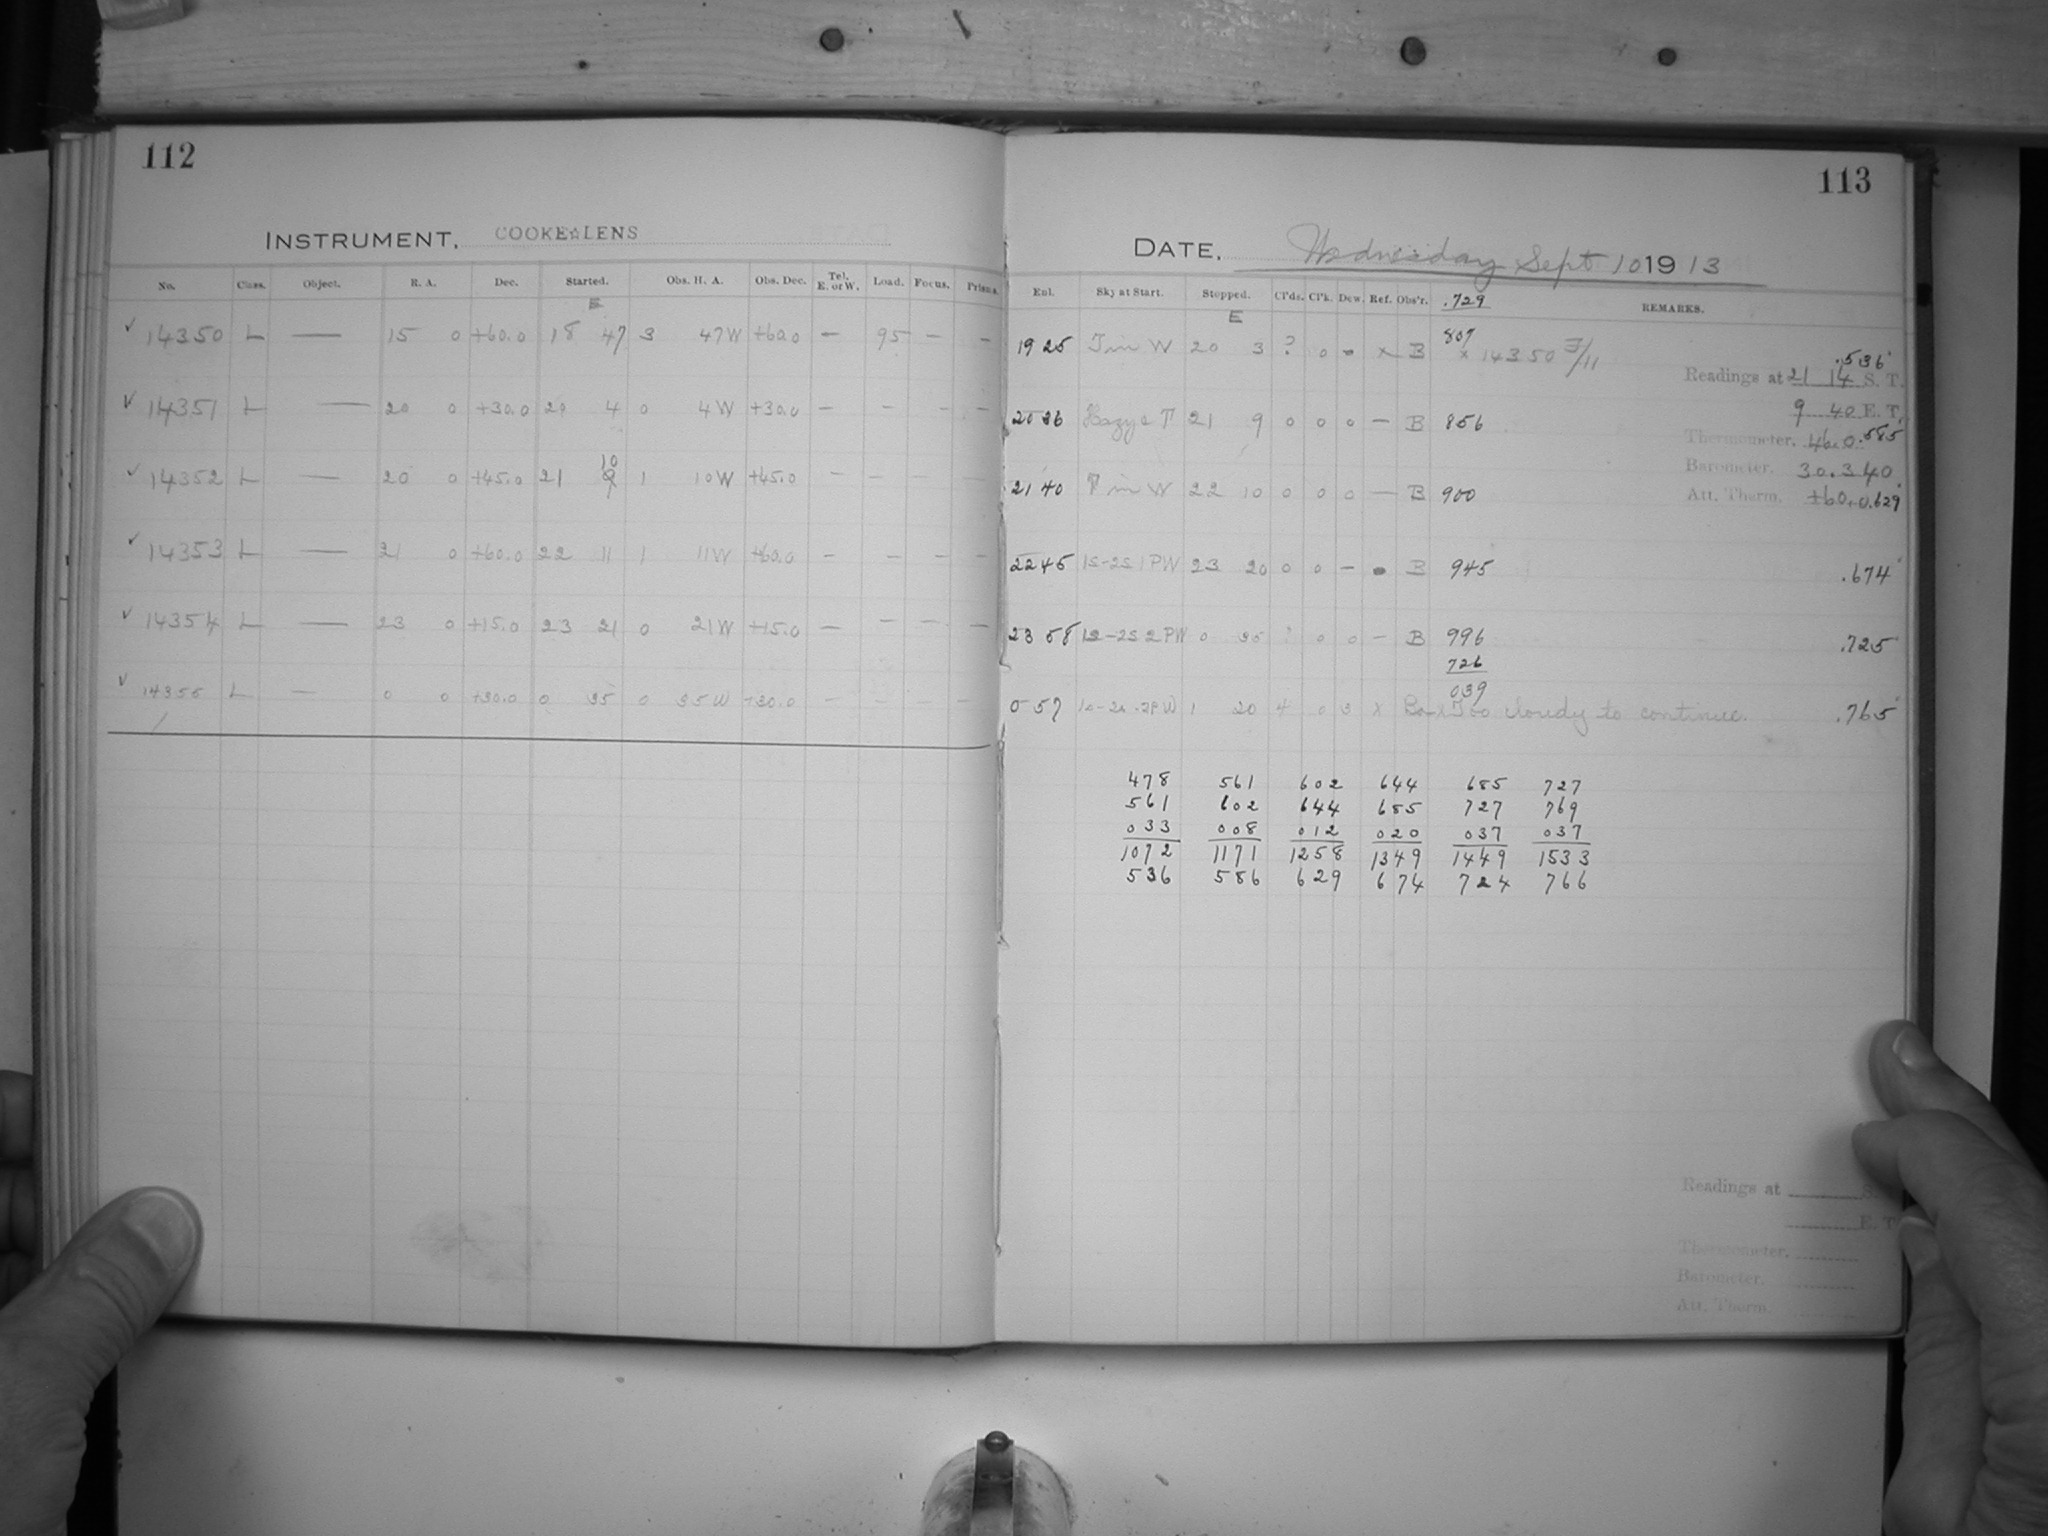 112
INSTRUMENT. COOKE☆LENS
No. Class. Object. R. A. Dec. Started. Obs. H. A. Obs. Dec. Tel. E. or W. Load. Focus. Prisms.
E
✓ 14350 L — 15 0 +60.0 18 47 3 47W +60.0 — 95 — —
✓ 14351 L — 20 0 +30.0 20 4 0 4W +30.0 — — — —
10
✓ 14352 L — 20 0 +45.0 21 9 1 10W +45.0 — — — —
✓ 14353 L — 21 0 +60.0 22 11 1 11W +60.0 — — — —
✓ 14354 L — 23 0 +15.0 23 21 0 21W +15.0 — — — —
✓ 14355 L — 0 0 +30.0 0 35 0 35W +30.0 — — — —
113
DATE. Wednesday Sept 10 1913
Exl. Sky at Start. Stopped. Cl'ds. Cl'k. Dew. Ref. Obs'r. .729 REMARKS.
E
19 25 T in W 20 3 ? 0 0 x B 807 x 14350 3/11
.536
Readings at 21 14 S. T.
9 40 E. T.
20 36 21 9 0 0 0 — B 856
Thermometer. 46.0 .585
Barometer. 30.340
21 40 T in W 22 10 0 0 0 — B 900
Att. Therm. +60.0 .629
22 45 1S-2S 1PW 23 20 0 0 — B 945 .674
23 58 1S-2S 2PW 0 35 ? 0 0 — B 996 .725
726
039
0 57 1 20 4 0 3 x Too cloudy to continue. .765
478 561 602 644 685 727
561 602 644 685 727 769
033 008 012 020 037 037
1072 1171 1258 1349 1449 1533
536 586 629 674 724 766
Readings at S.
E. T
Thermometer.
Barometer.
Att. Therm.